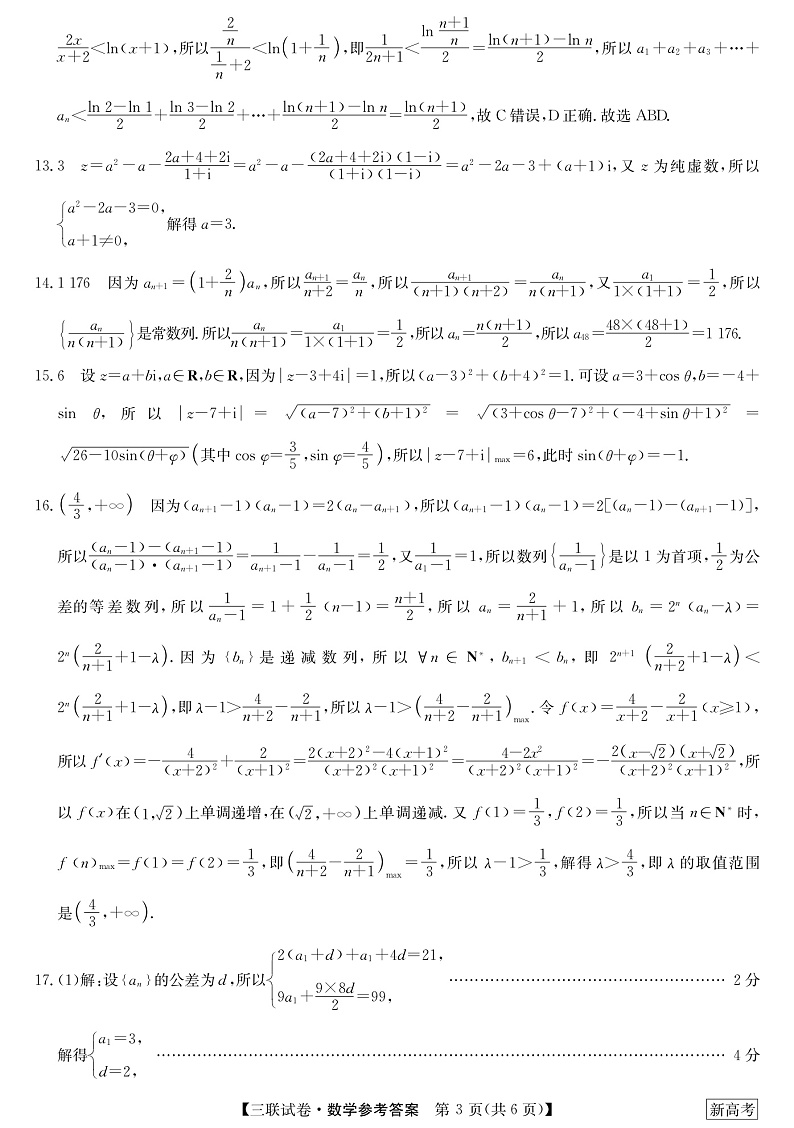 $\frac{2x}{x+2}<\ln(x+1)$,所以$\frac{\frac{2}{n}}{\frac{1}{n}+2}<\ln\left(1+\frac{1}{n}\right)$,即$\frac{1}{2n+1}<\frac{\ln\frac{n+1}{n}}{2}=\frac{\ln(n+1)-\ln n}{2}$,所以 $a_1+a_2+a_3+\cdots+$
$a_n<\frac{\ln 2-\ln 1}{2}+\frac{\ln 3-\ln 2}{2}+\cdots+\frac{\ln(n+1)-\ln n}{2}=\frac{\ln(n+1)}{2}$,故 C 错误,D 正确. 故选 ABD.
13. 3 $z=a^2-a-\frac{2a+4+2i}{1+i}=a^2-a-\frac{(2a+4+2i)(1-i)}{(1+i)(1-i)}=a^2-2a-3+(a+1)i$,又 z 为纯虚数,所以
$\begin{cases}a^2-2a-3=0,\\a+1\neq 0,\end{cases}$ 解得 $a=3$.
14. 1 176 因为 $a_{n+1}=\left(1+\frac{2}{n}\right)a_n$,所以$\frac{a_{n+1}}{n+2}=\frac{a_n}{n}$,所以$\frac{a_{n+1}}{(n+1)(n+2)}=\frac{a_n}{n(n+1)}$,又$\frac{a_1}{1\times(1+1)}=\frac{1}{2}$,所以
$\left\{\frac{a_n}{n(n+1)}\right\}$是常数列. 所以$\frac{a_n}{n(n+1)}=\frac{a_1}{1\times(1+1)}=\frac{1}{2}$,所以 $a_n=\frac{n(n+1)}{2}$,所以 $a_{48}=\frac{48\times(48+1)}{2}=1 176$.
15. 6 设 $z=a+bi$,$a\in\mathbf{R}$,$b\in\mathbf{R}$,因为$|z-3+4i|=1$,所以$(a-3)^2+(b+4)^2=1$. 可设 $a=3+\cos\theta$,$b=-4+$
$\sin\theta$,所以 $|z-7+i|=\sqrt{(a-7)^2+(b+1)^2}=\sqrt{(3+\cos\theta-7)^2+(-4+\sin\theta+1)^2}=$
$\sqrt{26-10\sin(\theta+\varphi)}$$\left(其中 \cos\varphi=\frac{3}{5},\sin\varphi=\frac{4}{5}\right)$,所以$|z-7+i|_{\max}=6$,此时 $\sin(\theta+\varphi)=-1$.
16. $\left(\frac{4}{3},+\infty\right)$ 因为$(a_{n+1}-1)(a_n-1)=2(a_n-a_{n+1})$,所以$(a_{n+1}-1)(a_n-1)=2[(a_n-1)-(a_{n+1}-1)]$,
所以$\frac{(a_n-1)-(a_{n+1}-1)}{(a_n-1)\cdot(a_{n+1}-1)}=\frac{1}{a_{n+1}-1}-\frac{1}{a_n-1}=\frac{1}{2}$,又$\frac{1}{a_1-1}=1$,所以数列$\left\{\frac{1}{a_n-1}\right\}$是以 1 为首项,$\frac{1}{2}$为公
差的等差数列,所以 $\frac{1}{a_n-1}=1+\frac{1}{2}(n-1)=\frac{n+1}{2}$,所以 $a_n=\frac{2}{n+1}+1$,所以 $b_n=2^n(a_n-\lambda)=$
$2^n\left(\frac{2}{n+1}+1-\lambda\right)$. 因为 $\{b_n\}$ 是递减数列,所以 $\forall n\in\mathbf{N}^*$,$b_{n+1}<b_n$,即 $2^{n+1}\left(\frac{2}{n+2}+1-\lambda\right)<$
$2^n\left(\frac{2}{n+1}+1-\lambda\right)$,即 $\lambda-1>\frac{4}{n+2}-\frac{2}{n+1}$,所以 $\lambda-1>\left(\frac{4}{n+2}-\frac{2}{n+1}\right)_{\max}$. 令 $f(x)=\frac{4}{x+2}-\frac{2}{x+1}(x\geqslant 1)$,
所以 $f'(x)=-\frac{4}{(x+2)^2}+\frac{2}{(x+1)^2}=\frac{2(x+2)^2-4(x+1)^2}{(x+2)^2(x+1)^2}=\frac{4-2x^2}{(x+2)^2(x+1)^2}=-\frac{2(x-\sqrt{2})(x+\sqrt{2})}{(x+2)^2(x+1)^2}$,所
以 $f(x)$在$(1,\sqrt{2})$上单调递增,在$(\sqrt{2},+\infty)$上单调递减. 又 $f(1)=\frac{1}{3}$,$f(2)=\frac{1}{3}$,所以当 $n\in\mathbf{N}^*$ 时,
$f(n)_{\max}=f(1)=f(2)=\frac{1}{3}$,即$\left(\frac{4}{n+2}-\frac{2}{n+1}\right)_{\max}=\frac{1}{3}$,所以 $\lambda-1>\frac{1}{3}$,解得 $\lambda>\frac{4}{3}$,即 $\lambda$ 的取值范围
是$\left(\frac{4}{3},+\infty\right)$.
17. (1)解:设$\{a_n\}$的公差为 $d$,所以$\begin{cases}2(a_1+d)+a_1+4d=21,\\9a_1+\frac{9\times 8d}{2}=99,\end{cases}$ …… 2 分
解得$\begin{cases}a_1=3,\\d=2,\end{cases}$ …… 4 分
【三联试卷·数学参考答案 第 3 页(共 6 页)】 新高考